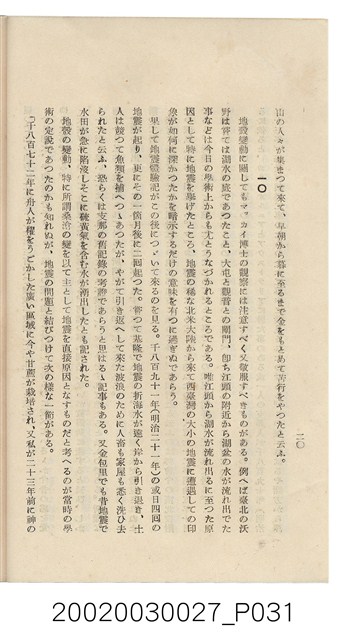 二〇
山の人々が集まつて來て、早朝から暮に至るまで金をもとめて苦行をやつたと云ふ。
一〇
地殼變動に關してもマ。カイ博士の觀察には注意すべく又敬服すべきものがある。例へば臺北の沃
野は曾ては湖水の底であつたこと、大屯と觀音との關門、卽ち江頭の附近から湖盆の水が流れ出でた
事などは今日の學術上からも大とうなづかれるところである。唯江頭から湖水が流れ出るに至つた原
因として特に地震を擧げたところ、地震の稀な北米大陸から來て西臺灣の大小の地震に遭遇しての印
象が如何に深かつたかを暗示するだけの意味を有つに過ぎぬであらう。
果して地震體驗記がこの後につゞいて來るのを見る。千八百九十一年(明治二十一年)の或日四囘の
地震が起り、更にその一箇月後に二囘起つた。嘗つて基隆で地震の折海水が遠く岸から引き退き、土
人は競つて魚類を捕へつゝあつたが、やがて引き返へして來た波浪のために人畜も家屋も悉く洗ひ去
られたと云ふ、恐らくは支那の舊記錄の考證であらうと思はるゝ記事もある。又金包里でも昔地震で
水田が急に陷沒しそこに硫黃氣を含む水が湧出したとも記された。
地殼の變動、特に所謂桑滄の變を以て主として地震を直接原因となすものだと考へるのが當時の學
術の定說であつたのかも知れぬが、地震の問題と結びつけて次の樣な一節がある。
「千八百七十二年に舟人が櫂をうごかした廣い區域に今や甘蔗が栽培され、又私が二十三年前に神の
20020030027_P031